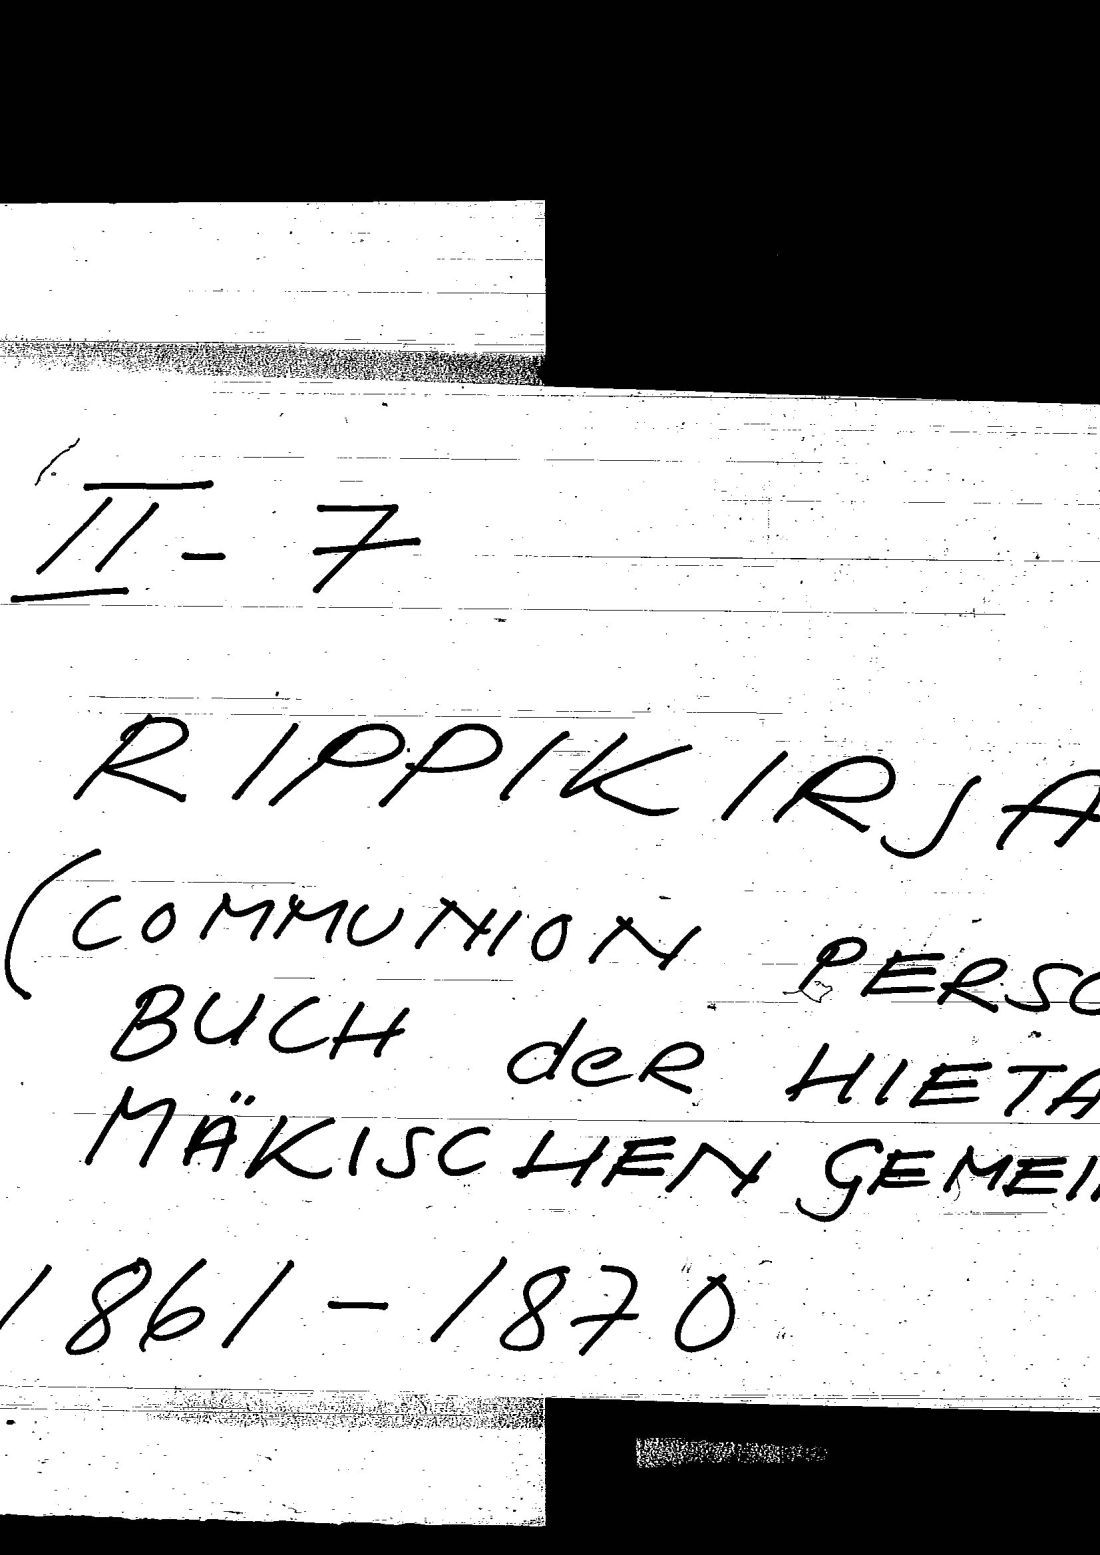 II - 7
RIPPIKIRJA
(COMMUNION PERSO
BUCH der HIETA
MÄKISCHEN GEMEI
1861 - 1870